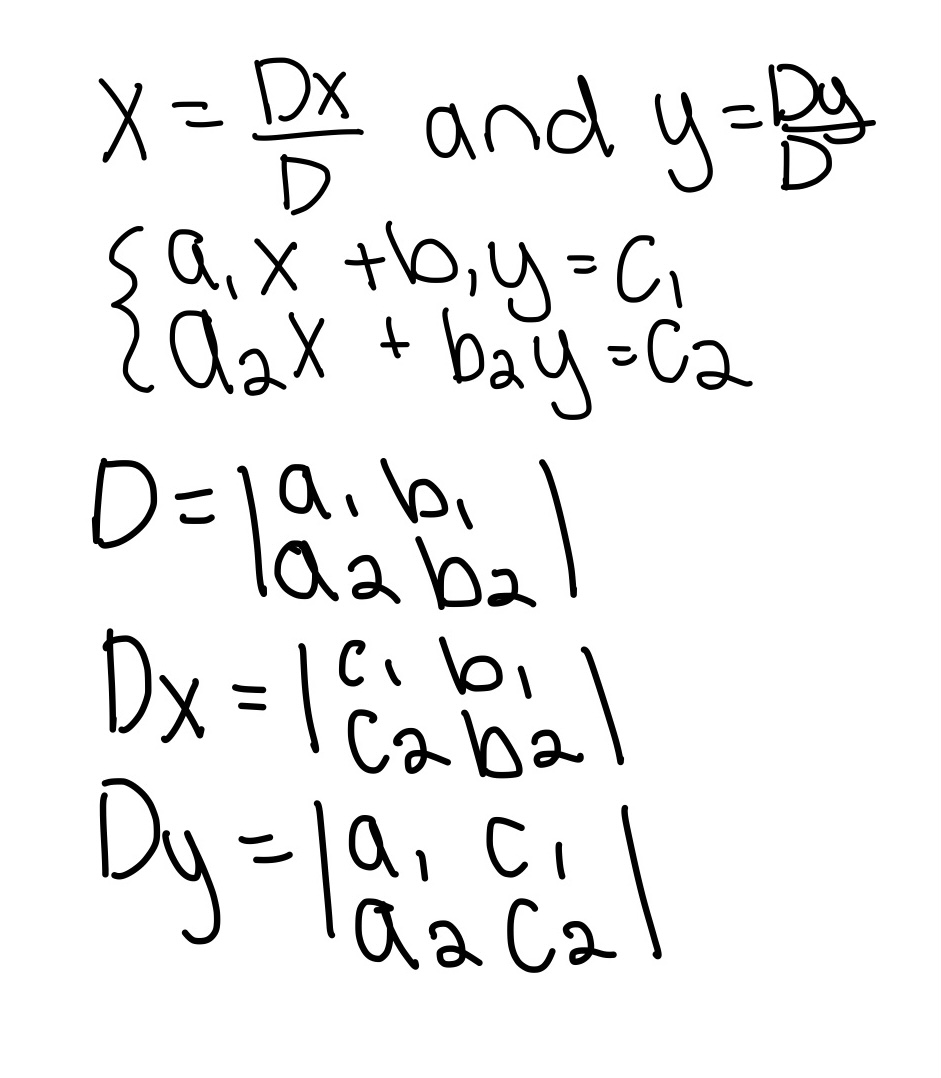 x = Dx/D and y = Dy/D
{ a₁x + b₁y = c₁
a₂x + b₂y = c₂
D = | a₁ b₁ |
a₂ b₂
Dx = | c₁ b₁ |
c₂ b₂
Dy = | a₁ c₁ |
a₂ c₂